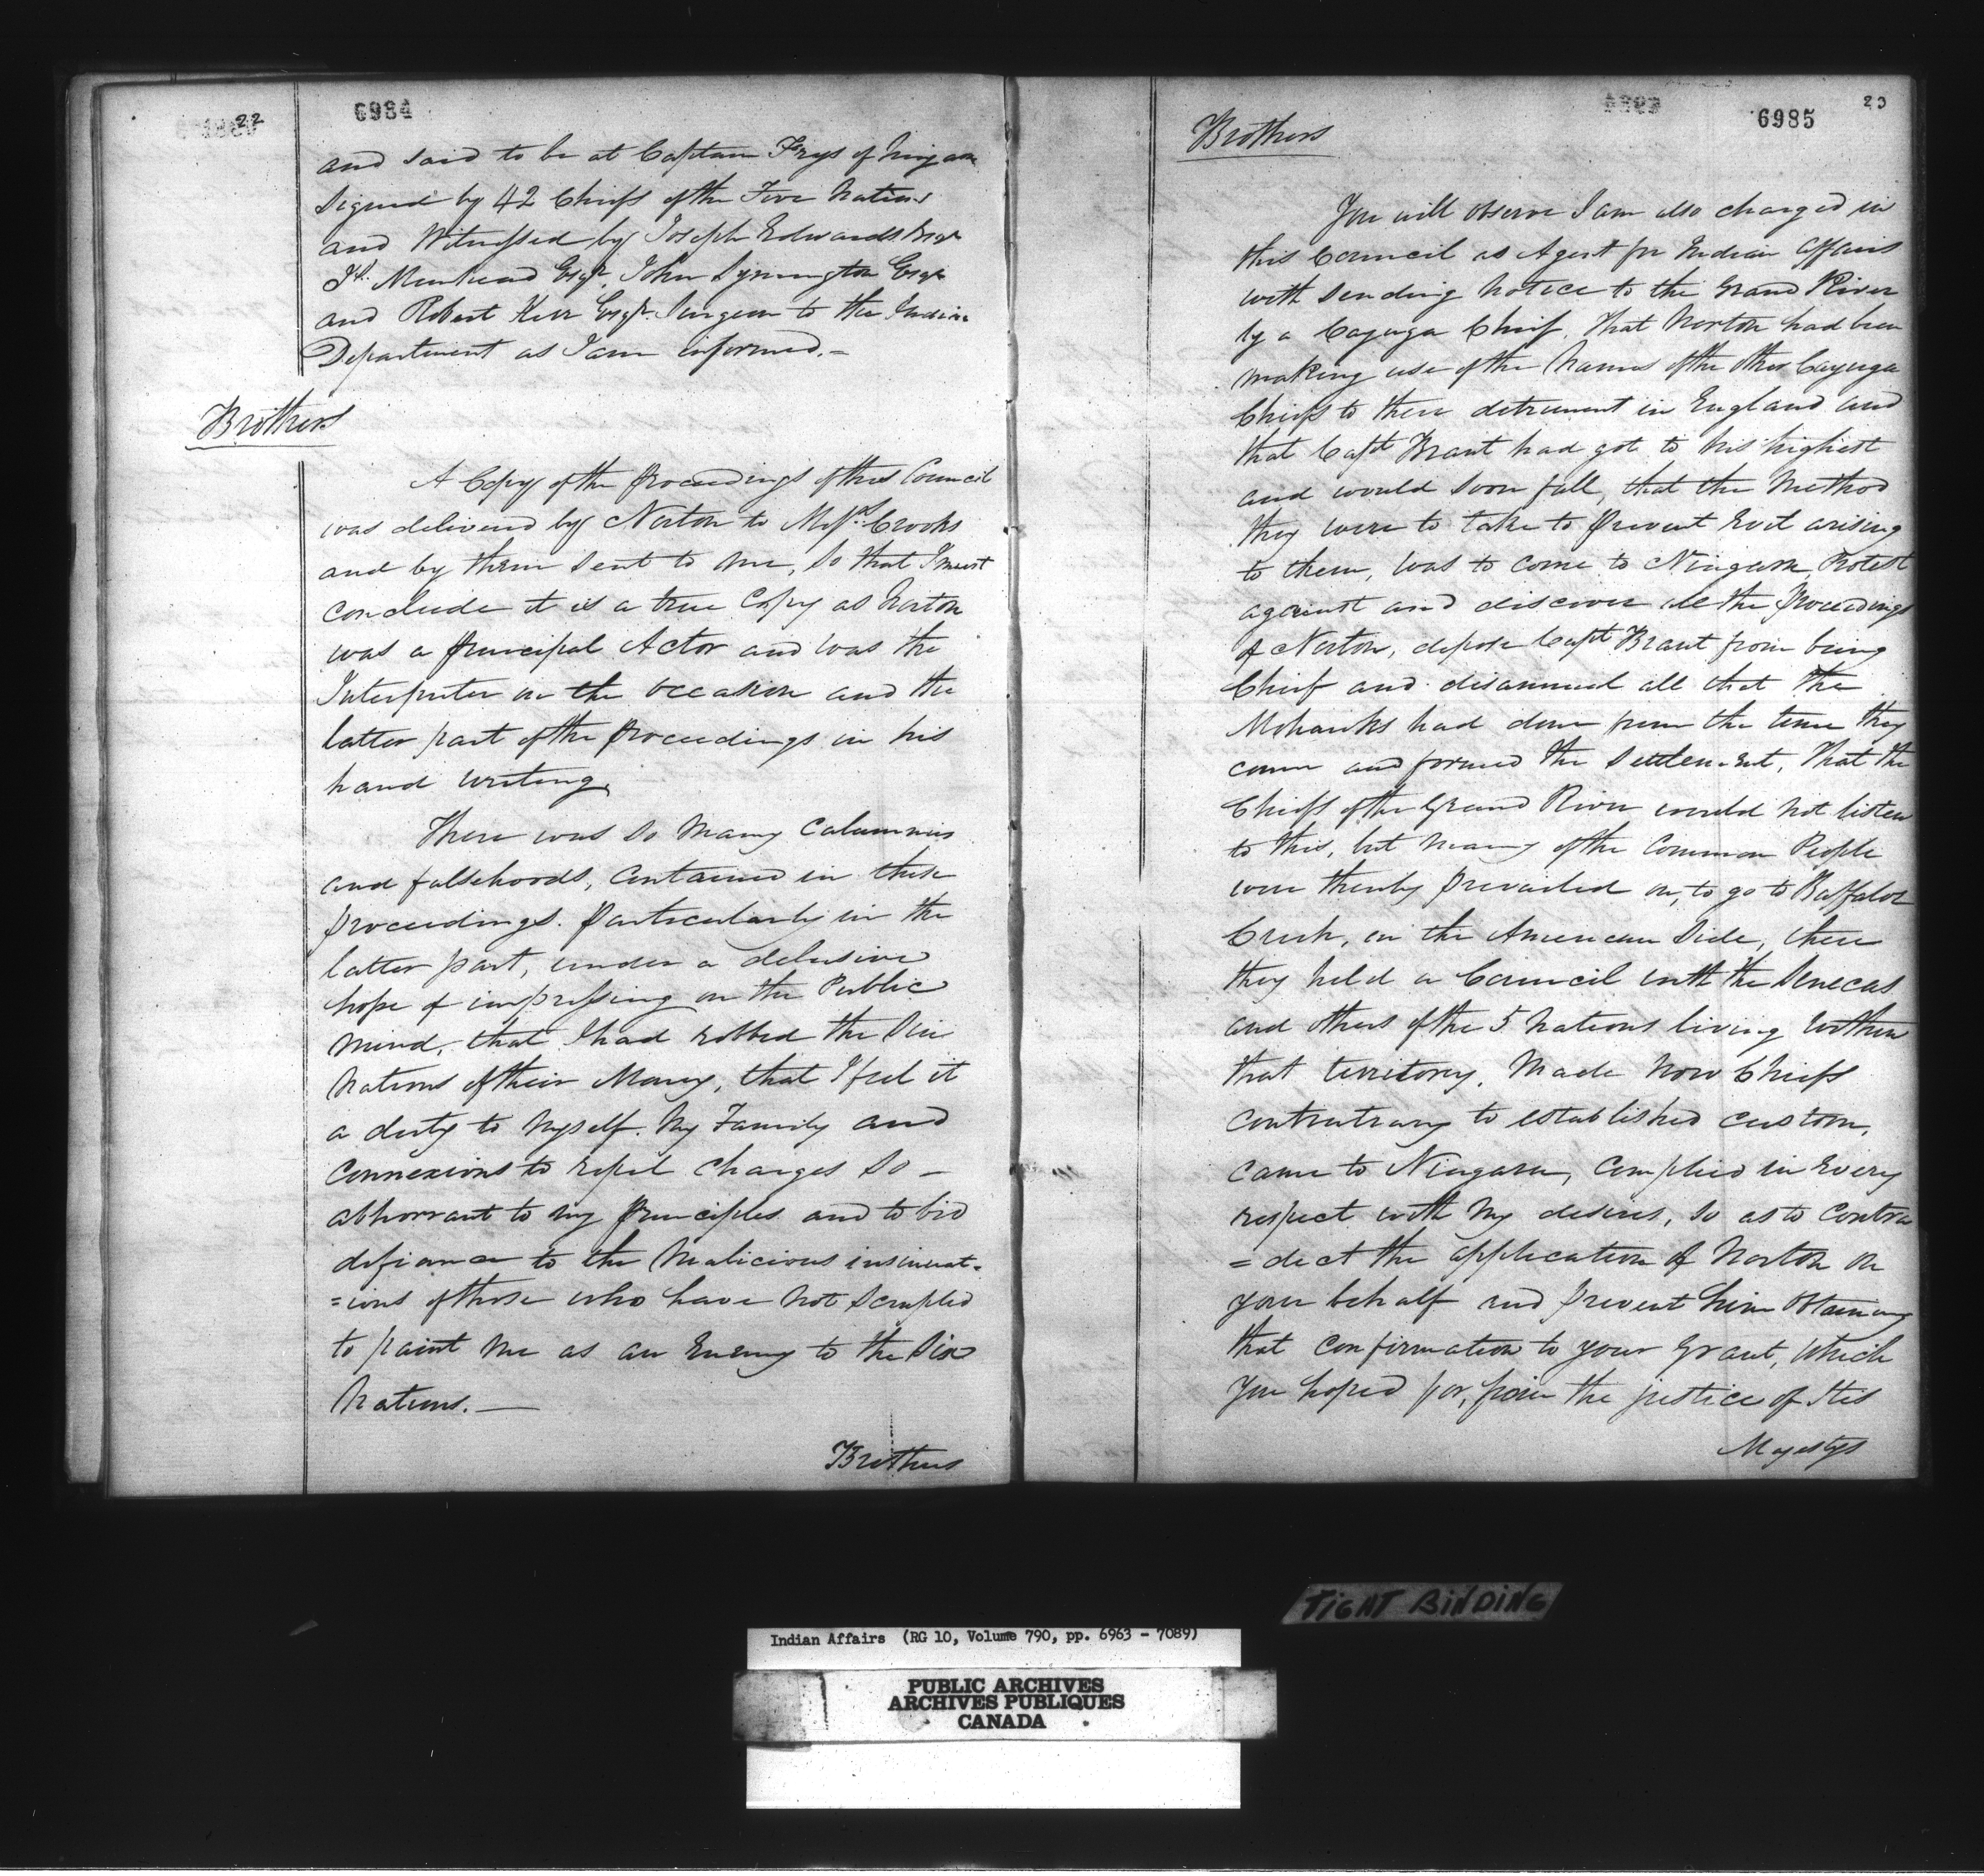 22
6984
and said to be at Captain Frys of Niagara
Signed by 42 Chiefs of the Five Nations
and Witnessed by Joseph Edwards Esqr
Muirhead Esqr. John Symington Esqr
and Robert Kerr Esqr. Surgeon to the Indian
Department as I am informed.-
Brothers
A Copy of the proceedings of this Council
was delivered by Norton to Messrs Crooks
and by them sent to me, so that I must
conclude it is a true Copy as Norton
was a principal Actor and was the
Interpreter on the occasion and the
latter part of the proceedings in his
hand writing.
There was so many Calumnies
and falsehoods, contained in these
proceedings. particularly in the
latter part, under a delusive
hope of impressing on the Public
mind, that I had robbed the Six
Nations of their Money, that I feel it
a duty to myself. My Family and
Connexions to repel charges so -
abhorrant to my principles and to bid
defiance to the Malicious insinuat-
=ions of those who have not scrupled
to paint me as an Enemy to the Six
Nations. —
Brothers
6985
Brothers
You will observe I am also charged in
this Council as Agent for Indian Affairs
with sending notice to the Grand River
by a Cayuga Chief, that Norton had been
making use of the Names of the other Cayuga
Chiefs to their detriment in England and
that Capt Brant had got to his highest
and would soon fall, that the Method
they were to take to prevent Evil arising
to them, was to come to Niagara, Protest
against and discover all the proceedings
of Norton, depose Capt Brant from being
Chief and disannul all that the
Mohawks had done from the time they
came and formed the Settlement, That the
Chiefs of the Grand River would not listen
to this, but many of the Common People
were thereby prevailed on, to go to Buffaloe
Creek, on the American Side, there
they held a Council with the Senecas
and others of the 5 Nations living within
that territory, Made Now Chiefs
contrutrary to established custom,
came to Niagara, complied in Every
respect with my desires, so as to Contra
=dict the application of Norton on
your behalf and prevent him obtaining
that confirmation to your Grant, which
you hoped for, from the justice of His
Majestys
TIGHT BINDING
Indian Affairs (RG 10, Volume 790, pp. 6963 - 7089)
PUBLIC ARCHIVES
ARCHIVES PUBLIQUES
CANADA